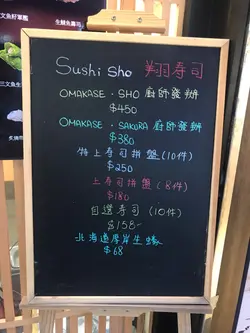 文魚籽軍艦
生鯖魚壽司
三文魚生
Sushi Sho 翔寿司
OMAKASE · SHO 廚師發辦
$450
OMAKASE · SAKURA 廚師發辦
$380
特上寿司拼盤 (10件)
$250
上寿司拼盤 (8件)
$180
自選寿司 (10件)
$158-
北海道厚岸生蠔
$68